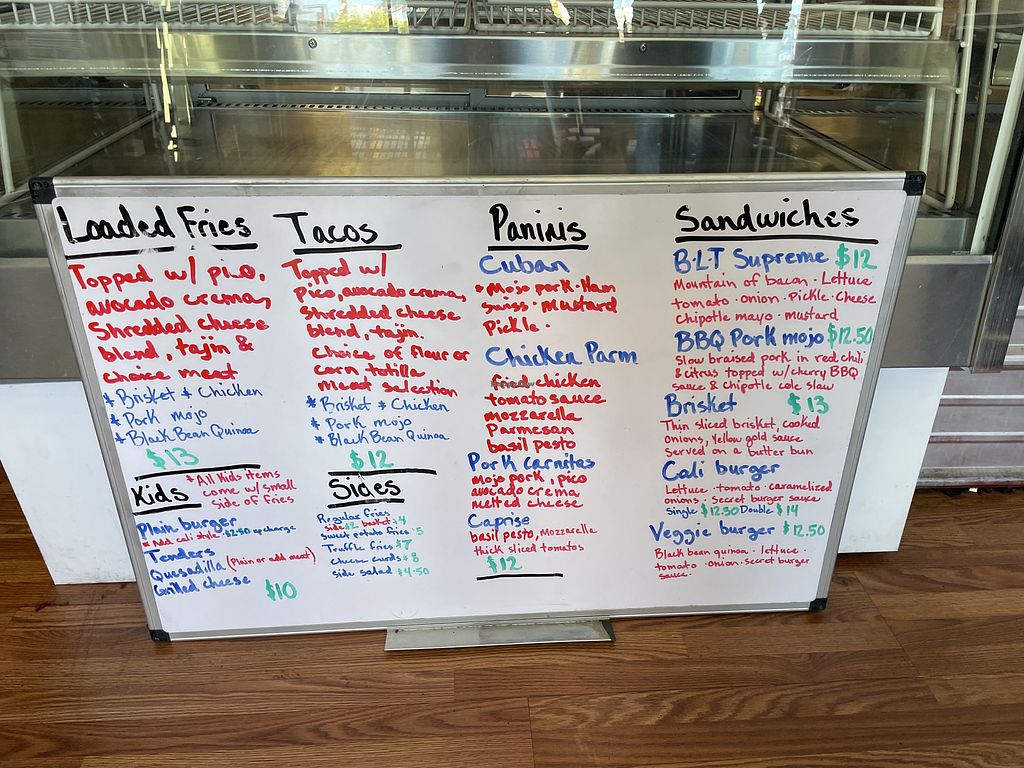 Loaded Fries
Topped w/ pico,
avocado crema,
Shredded cheese
blend, tajin &
choice meat
* Brisket * Chicken
* Pork mojo
* Black Bean Quinoa
$13
Kids
* All Kids items
come w/ small
side of fries
Plain burger
* Add cali style $2.50 upcharge
Tenders
Quesadilla (Plain or add meat)
Grilled cheese
$10
Tacos
Topped w/
Pico, avocado crema,
shredded cheese
blend, tajin.
choice of flour or
corn totilla
meat selection
* Brisket * Chicken
* Pork mojo
* Black Bean Quinoa
$12
Sides
Regular fries
side $2 basket $4
Sweet potato fries $5
Truffle fries $7
Cheese curds $8
side salad $4.50
Paninis
Cuban
• Mojo pork • Ham
swiss • mustard
Pickle •
Chicken Parm
fried chicken
tomato sauce
mozzarella
Parmesan
basil pesto
Pork carnitas
mojo pork, pico
avocado crema
melted cheese
Caprise
basil pesto, Mozzarella
thick sliced tomatos
$12
Sandwiches
B.L.T Supreme $12
Mountain of bacon • Lettuce
tomato • onion • Pickle • Cheese
Chipotle mayo • mustard
BBQ Pork mojo $12.50
Slow braised pork in red chili
& citrus topped w/cherry BBQ
sauce & Chipotle cole slaw
Brisket $13
Thin sliced brisket, cooked
Onions, Yellow gold sauce
Served on a butter bun
Cali burger
Lettuce • tomato • caramelized
onions • Secret burger sauce
Single $12.50 Double $14
Veggie burger $12.50
Black bean quinoa • lettuce •
tomato • Onion • secret burger
sauce.